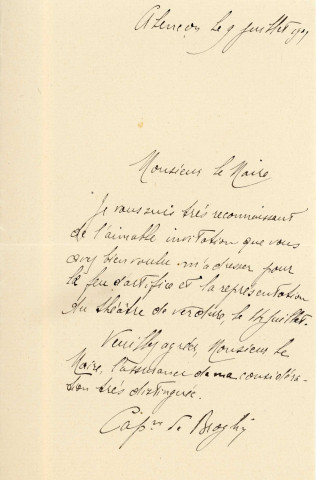 Alençon le 9 juillet
Monsieur le Maire
Je vous suis très reconnaissant
de l'aimable invitation que vous
avez bien voulu m'adresser pour
le feu d'artifice et la représentation
du théâtre de verdure, le 14 juillet.
Veuillez agréer, Monsieur le
Maire, l'assurance de ma considéra-
tion très distinguée.
Cap<sup>ne</sup> de Broglie